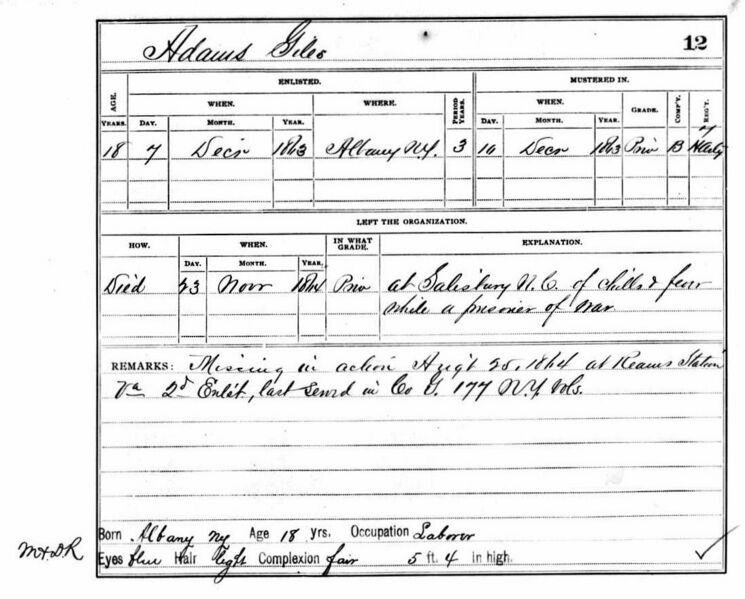 Adams Giles
12
ENLISTED. MUSTERED IN.
AGE. WHEN. WHERE. PERIOD YEARS. WHEN. GRADE. COMP'Y. REG'T.
YEARS. DAY. MONTH. YEAR. DAY. MONTH. YEAR.
7
18 7 Decr 1863 Albany N.Y. 3 16 Decr 1863 Priv B H Arty
LEFT THE ORGANIZATION.
HOW. WHEN. IN WHAT GRADE. EXPLANATION.
DAY. MONTH. YEAR.
Died 23 Novr 1864 Priv at Salisbury N.C. of chills & fever
while a prisoner of war
REMARKS: Missing in action Augt 25, 1864 at Reams Station
Va 2d Enlst, last served in Co 177 N.Y. Vols.
Born Albany NY Age 18 yrs. Occupation Laborer
M.H.D.R
Eyes blue Hair light Complexion fair 5 ft. 4 in high.